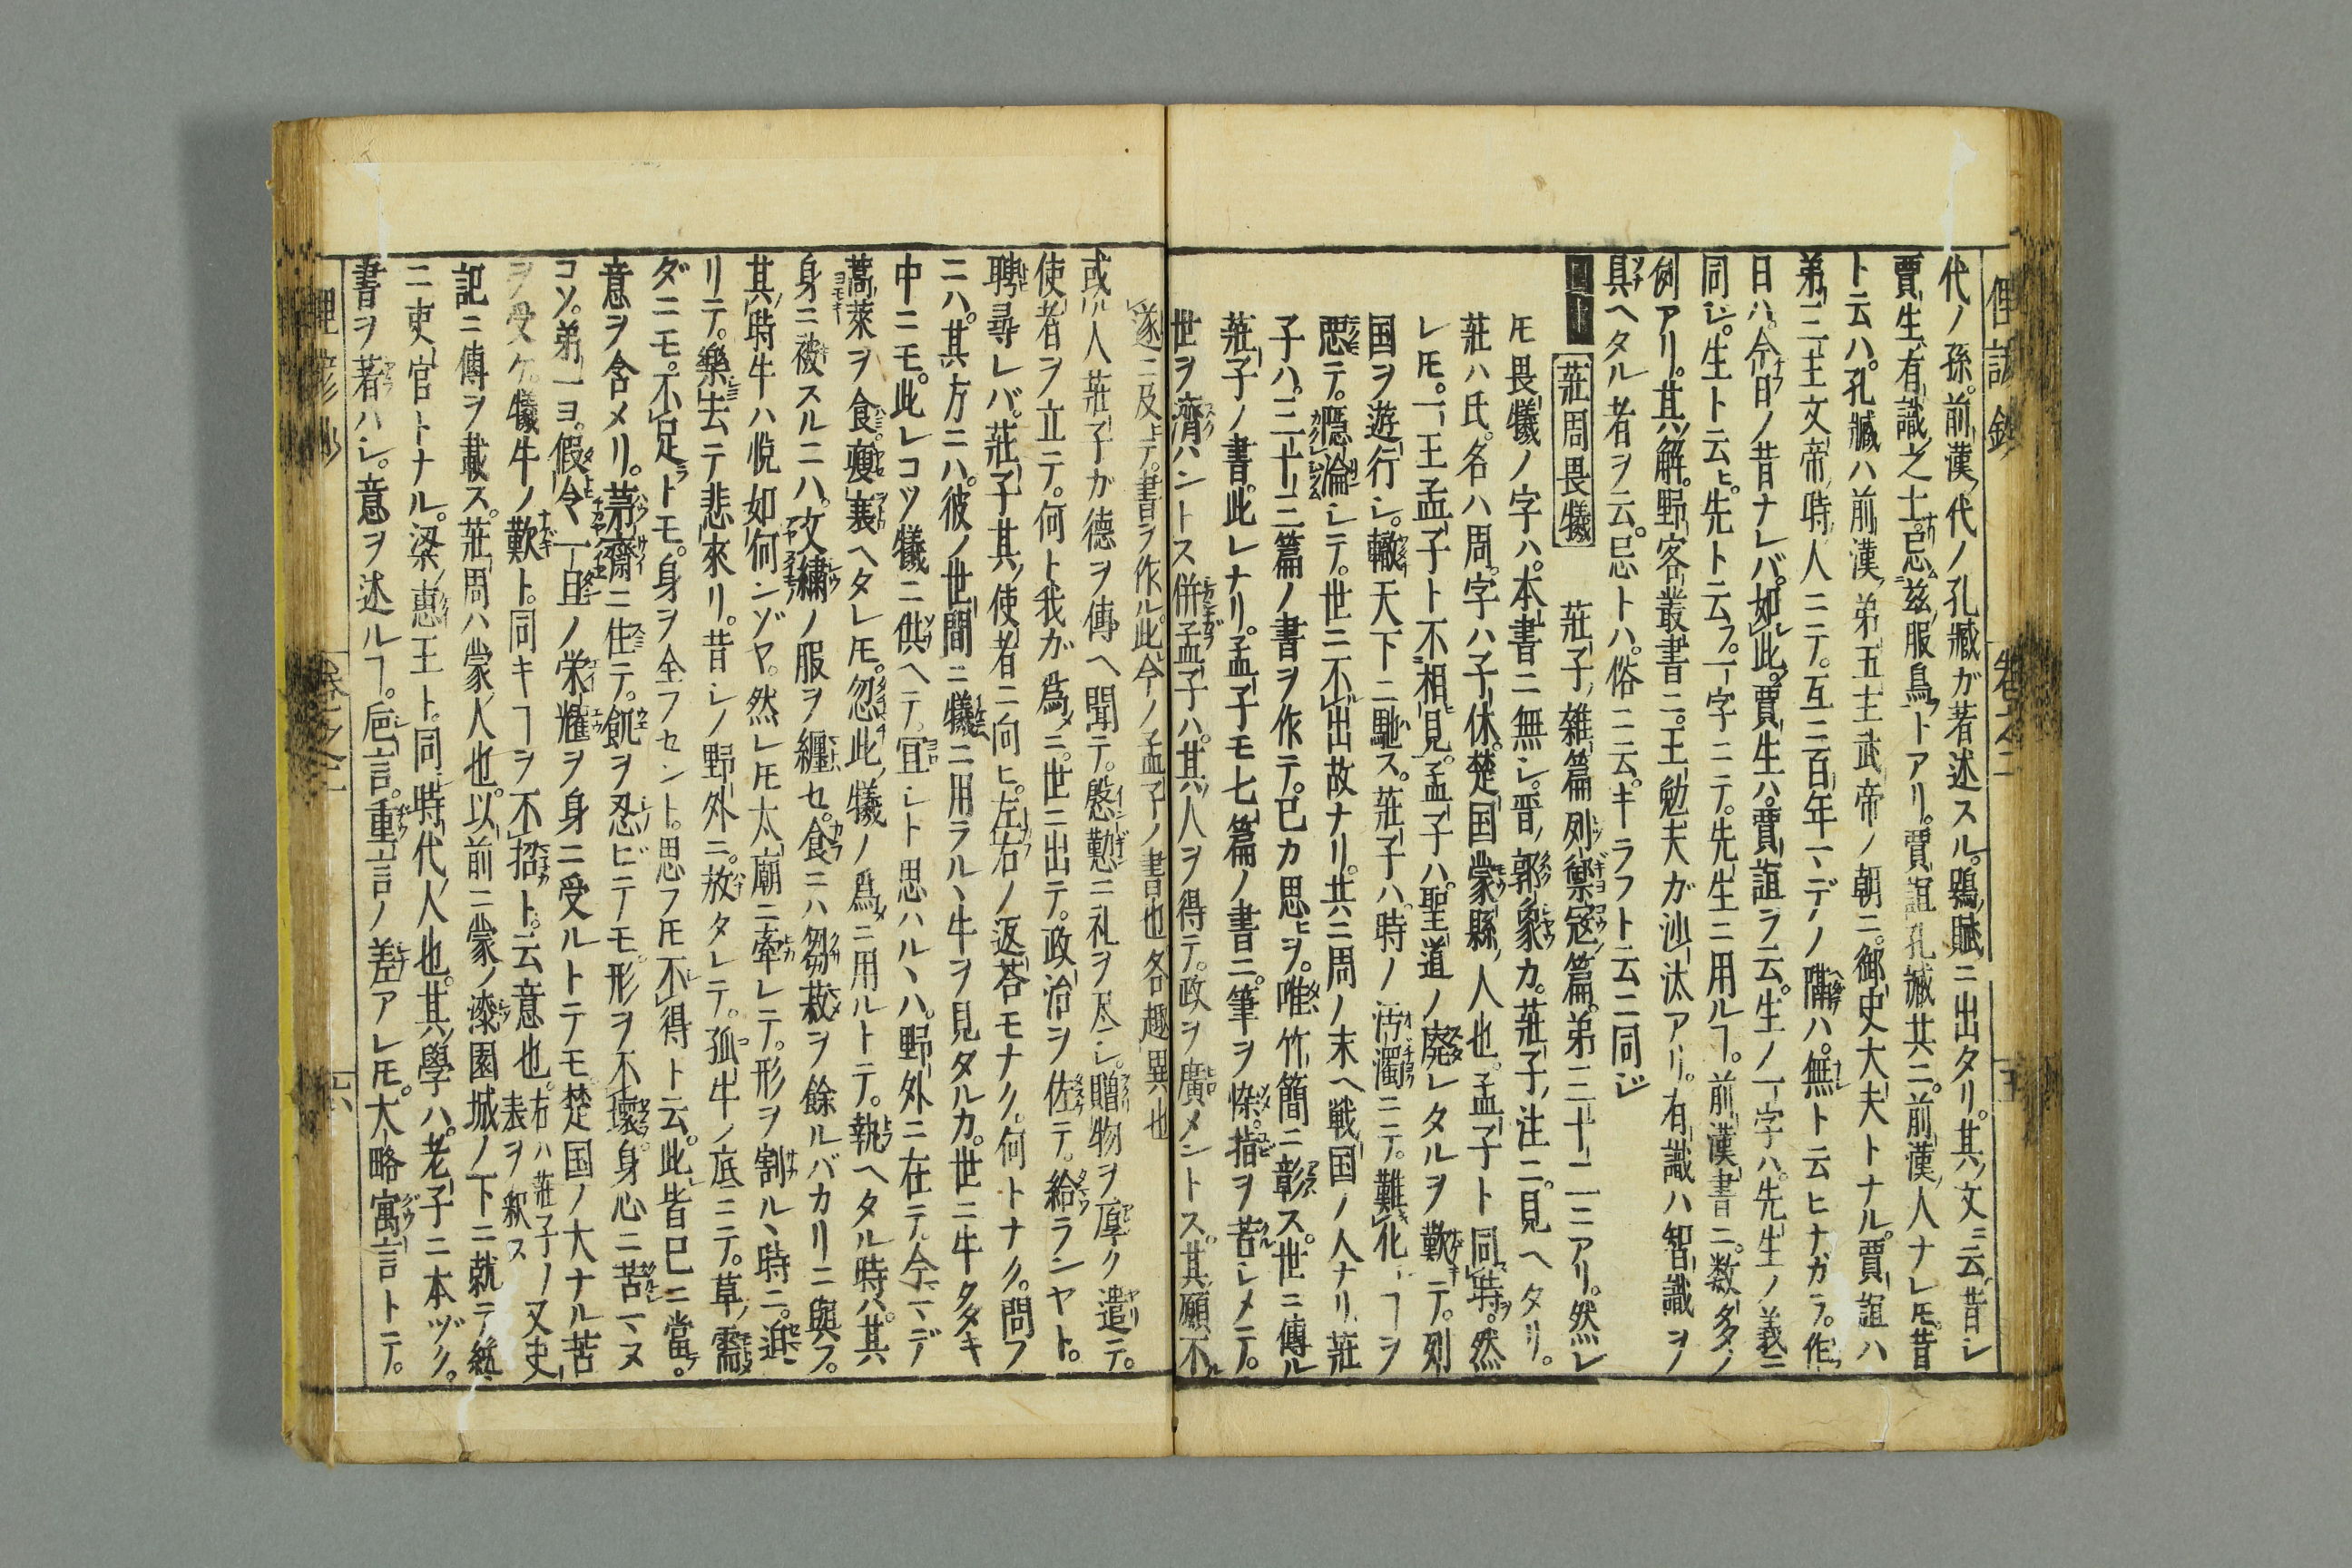 代ノ孫。前漢ノ代ノ孔臧ガ著述スル。鴞ノ賦ニ出タリ。其ノ文ニ云昔シ
賈生有識之士。忌茲服鳥トアリ。賈誼孔臧共ニ。前漢ノ人ナレ𪜈。昔
ト云ハ。孔臧ハ前漢ノ弟五主武帝ノ朝ニ。御史大夫トナル。賈誼ハ
弟三主文帝ノ時ノ人ニテ。互ニ百年マデノ隔ハ。無ト云ヒナガラ。作
日ハ。今日ノ昔ナレバ。如此。賈生ハ。賈誼ヲ云。生ノ一字ハ。先生ノ義ニ
同ジ。生ト云ヒ。先ト云フ。一字ニテ。先生ニ用ルヿ。前漢書ニ。数多ノ
例アリ。其ノ解。野客叢書ニ。王勉夫ガ沙汰アリ。有識ハ智識ヲ
具ヘタル者ヲ云。忌トハ。俗ニ云。キラフト云ニ同ジ
莊周畏犠 莊子ノ雜篇列禦寇篇。弟三十二ニアリ。然レ
𪜈畏犠ノ字ハ。本書ニ無シ。晋ノ郭象カ。莊子ノ注ニ。見ヘタリ。
莊ハ氏。名ハ周。字ハ子休。楚国蒙縣ノ人也。孟子ト同時。然
レ𪜈。一王孟子ト不相見。孟子ハ。聖道ノ廃レタルヲ歎テ。列
国ヲ遊行シ。轍天下ニ馳ス。莊子ハ。時ノ汚濁ニテ。難化ヿヲ
悪テ。隱淪シテ。世ニ不出故ナリ。共ニ周ノ末ヘ戦国ノ人ナリ。莊
子ハ。三十三篇ノ書ヲ作テ。已カ思ヒヲ。唯竹簡ニ彰ス。世ニ傳ル
莊子ノ書。此レナリ。孟子モ七篇ノ書ニ。筆ヲ染。指ヲ苦シメテ。
世ヲ濟ハントス併孟子ハ。其ノ人ヲ得テ。政ヲ廣メントス。其願不
遂ニ及テ。書ヲ作ル。此今ノ孟子ノ書也各趣異也
或ル人莊子ガ德ヲ傳ヘ聞テ。慇懃ニ礼ヲ尽シ。贈物ヲ厚ク遣テ。
使者ヲ立テ。何ト我ガ爲メニ。世ニ出テ。政治ヲ佐テ。給ランヤト。
聘尋レバ。莊子其ノ使者ニ向ヒ。左右ノ返荅モナク。何トナク。問フ
ニハ。其方ニハ。彼ノ世間ニ犠ニ用ラルヽ牛ヲ見タルカ。世ニ牛多キ
中ニモ。此レコソ犠ニ供ヘテ。宜シト思ハルヽハ。野外ニ在テ。今マデ
蒿萊ヲ食。瘦裏ヘタレ𪜈。忽此ノ犠ノ爲メニ用ルトテ。執ヘタル時ハ。其
身ニ被スルニハ。文繡ノ服ヲ纏セ。食ニハ芻菽ヲ餘ルバカリニ與フ。
其ノ時牛ハ悅如何ンゾヤ。然レ𪜈太廟ニ牽レテ。形ヲ割ルヽ時ニ。迨
リテ。樂去テ悲來リ。昔シノ野外ニ。放タレテ。孤牛ノ底ニテ。草ノ
ダニモ。不足トモ。身ヲ全フセント。思フ𪜈不得ト云。此レ皆已ニ當。
意ヲ含メリ。茅齋ニ住テ。飢ヲ忍ビテモ。形ヲ不壞。身心ニ苦マヌ
コソ。弟一ヨ。假令一旦ノ栄耀ヲ身ニ受ルトテモ。楚国ノ大ナル苦
ヲ受ケ。犠牛ノ歎ト。同キヿヲ不招ト。云意也。右ハ莊子ノ表ヲ釈ス 又史
記ニ傳ヲ載ス。莊周ハ蒙ノ人也。以前ニ蒙ノ漆園城ノ下ニ就テ縱
ニ吏官トナル。梁ノ惠王ト。同時代ノ人也。其ノ學ハ。老子ニ本ヅク。
書ヲ著ハシ。意ヲ述ルヿ。巵言。重言ノ差アレ𪜈。大略寓言トテ。
俚諺鈔 卷之二 五
俚諺鈔 卷之二 六